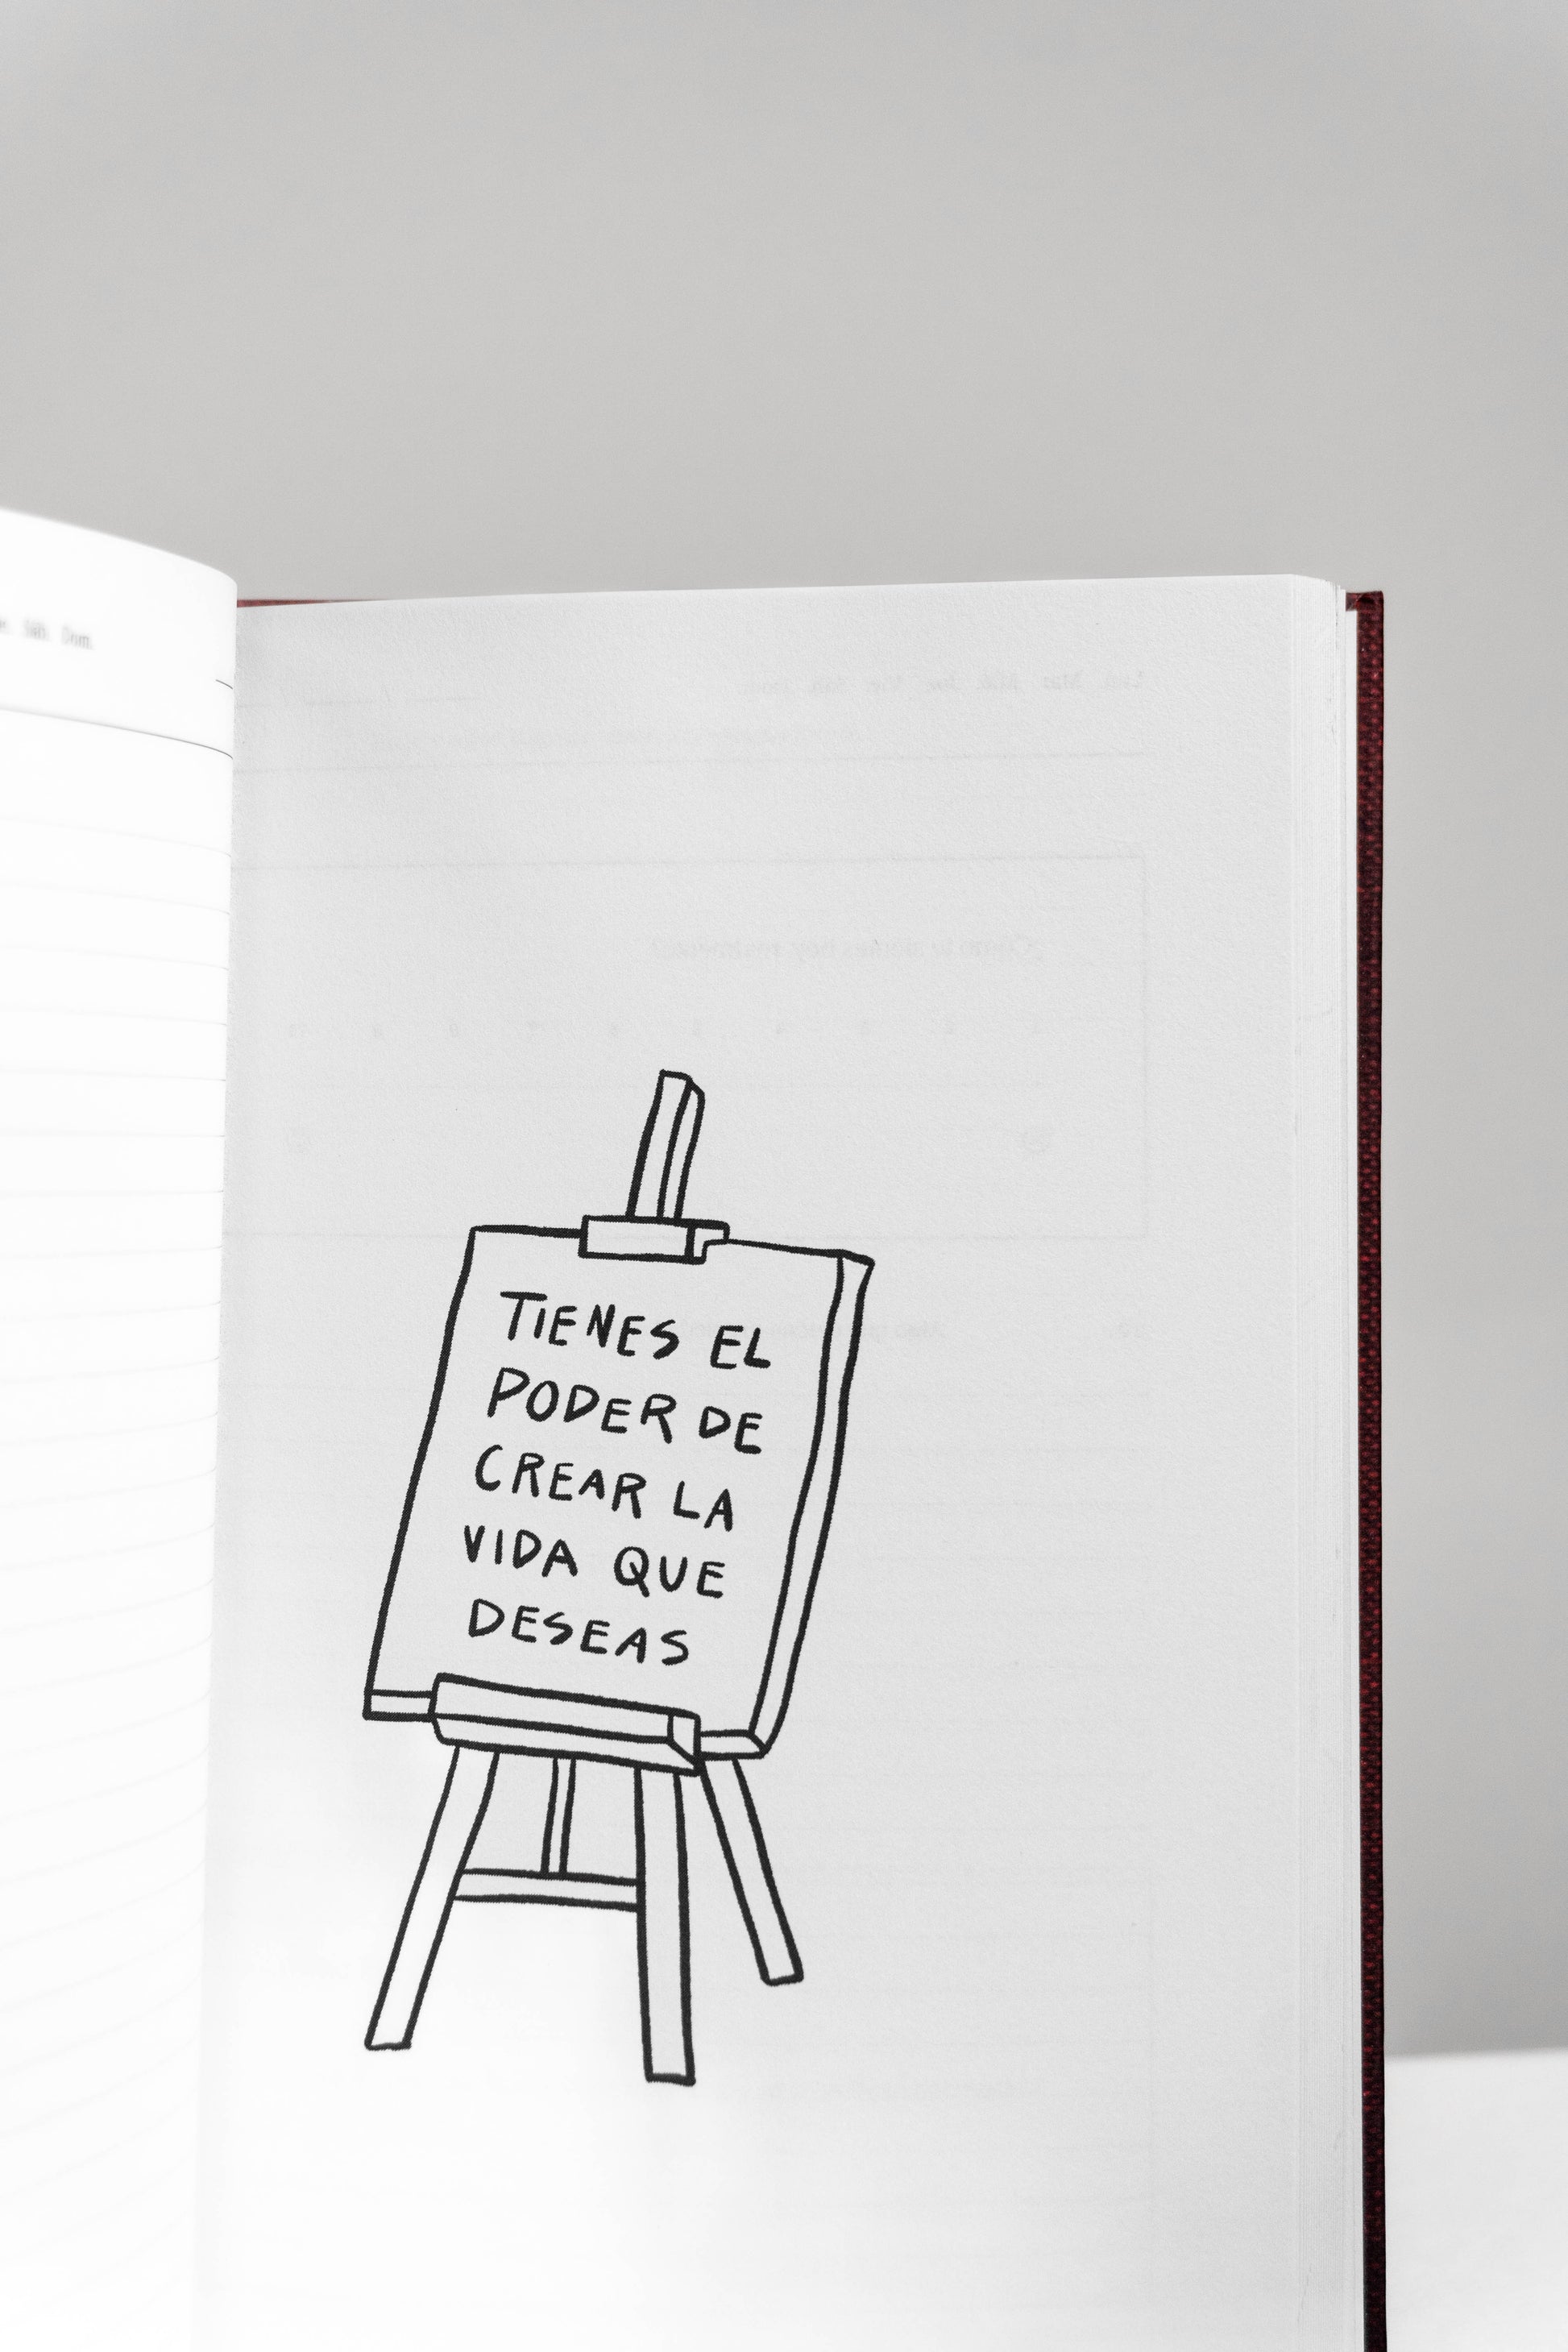 Sáb. Dom.
TIENES EL
PODER DE
CREAR LA
VIDA QUE
DESEAS